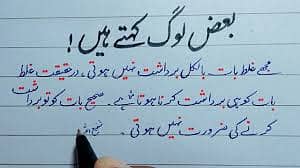 بعض لوگ کہتے ہیں!
مجھے غلط بات بالکل برداشت نہیں ہوتی۔ درحقیقت غلط
بات کو ہی برداشت کرنا ہوتا ہے۔ صحیح بات کو تو برداشت
کرنے کی ضرورت نہیں ہوتی۔